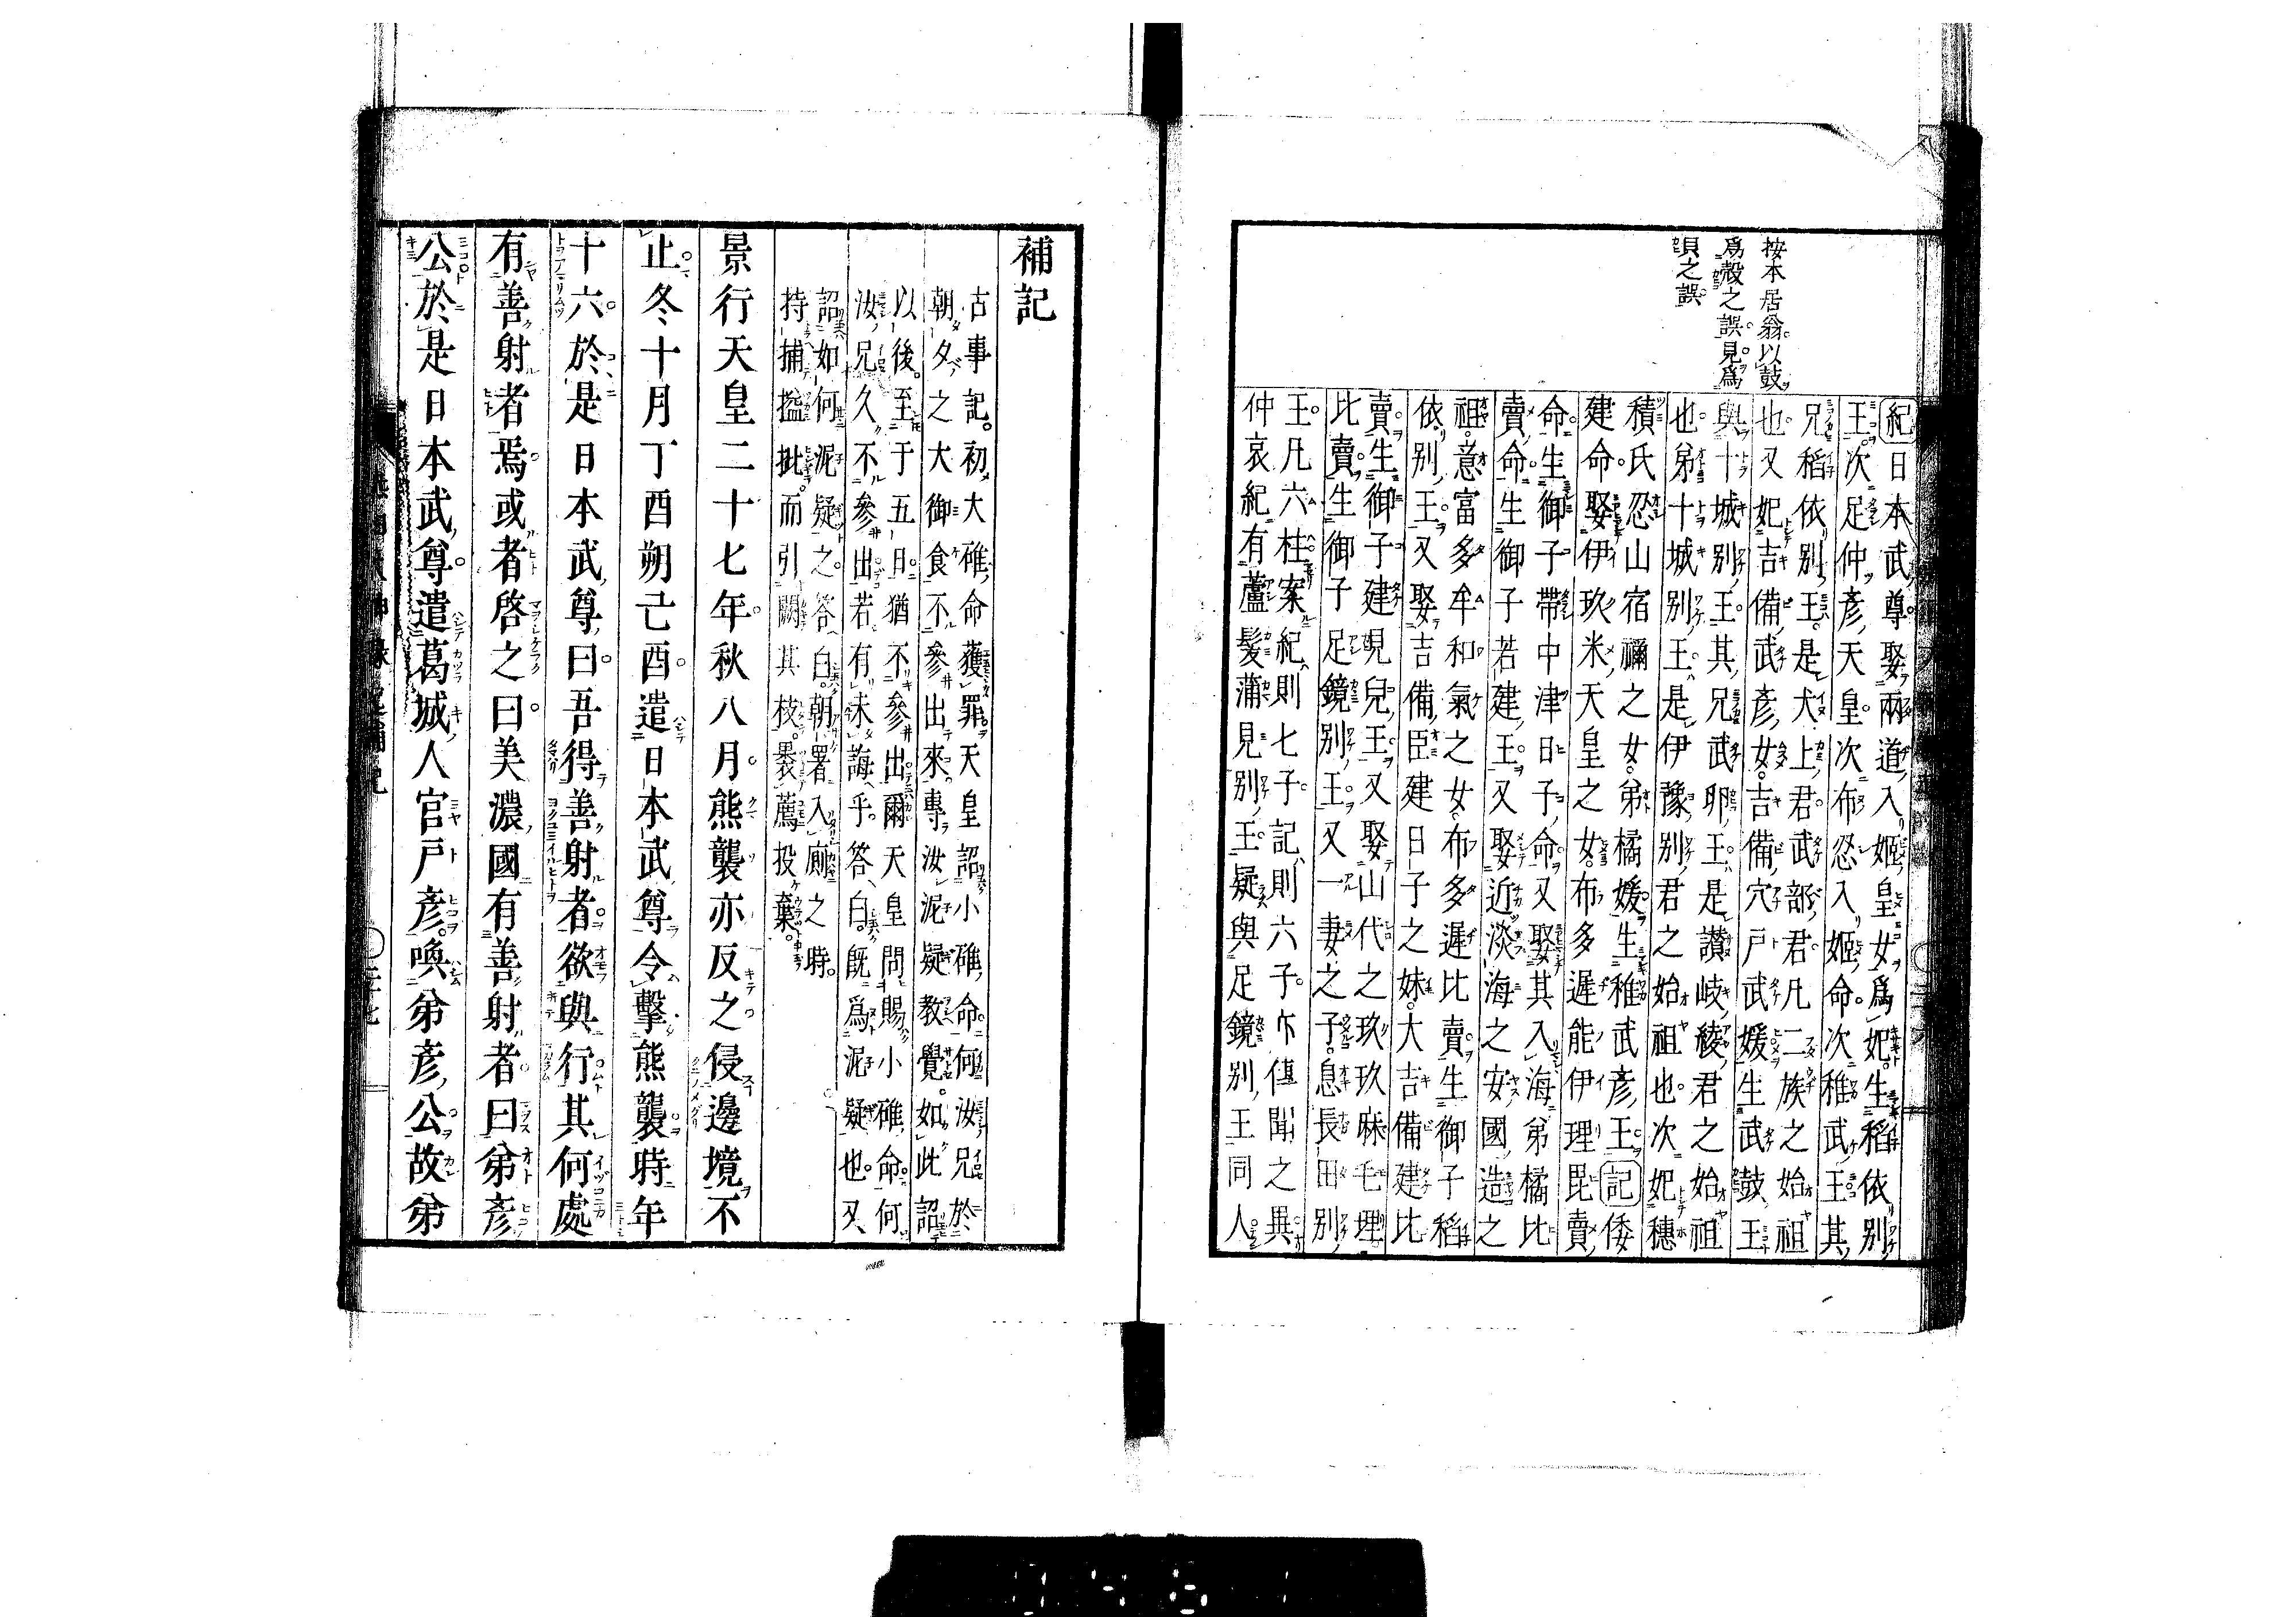 按本居翁以鼓
爲殻之誤見爲
貝之誤
紀日本武尊娶兩道入姬皇女爲妃生稻依別
王次足仲彥天皇次布忍入姬命次稚武王其
兄稻依別王是犬上君武部君凡二族之始祖
也又妃吉備武彥女吉備穴戸武媛生武鼓王
與十城別王其兄武卵王是讃岐綾君之始祖
也弟十城別王是伊豫別君之始祖也次妃穗
積氏忍山宿禰之女弟橘媛生稚武彥王記倭
建命娶伊玖米天皇之女布多遲能伊理毘賣
命生御子帶中津日子命又娶其入海弟橘比
賣命生御子若建王又娶近淡海之安國造之
祖意富多牟和氣之女布多遲比賣生御子稻
依別王又娶吉備臣建日子之妹大吉備建比
賣生御子建晛兒王又娶山代之玖玖麻毛理
比賣生御子足鏡別王又一妻之子息長田別
王凡六柱案紀則七子記則六子亦傳聞之異
仲哀紀有蘆髮蒲見別王疑與足鏡別王同人
補記
古事記初大碓命獲罪天皇詔小碓命何汝兄於
朝夕之大御食不參出來專汝泥疑教覺如此詔
以後至于五日猶不參出爾天皇問賜小碓命何
汝兄久不參出若有未誨乎答白既爲泥疑也又
詔如何泥疑之答白朝署入廁之時
持捕搤批而引闕其枝褁薦投棄
景行天皇二十七年秋八月熊襲亦反之侵邊境不
止冬十月丁酉朔己酉遣日本武尊令擊熊襲時年
十六於是日本武尊曰吾得善射者欲與行其何處
有善射者焉或者啓之曰美濃國有善射者曰弟彥
公於是日本武尊遣葛城人官戸彥喚弟彥公故弟